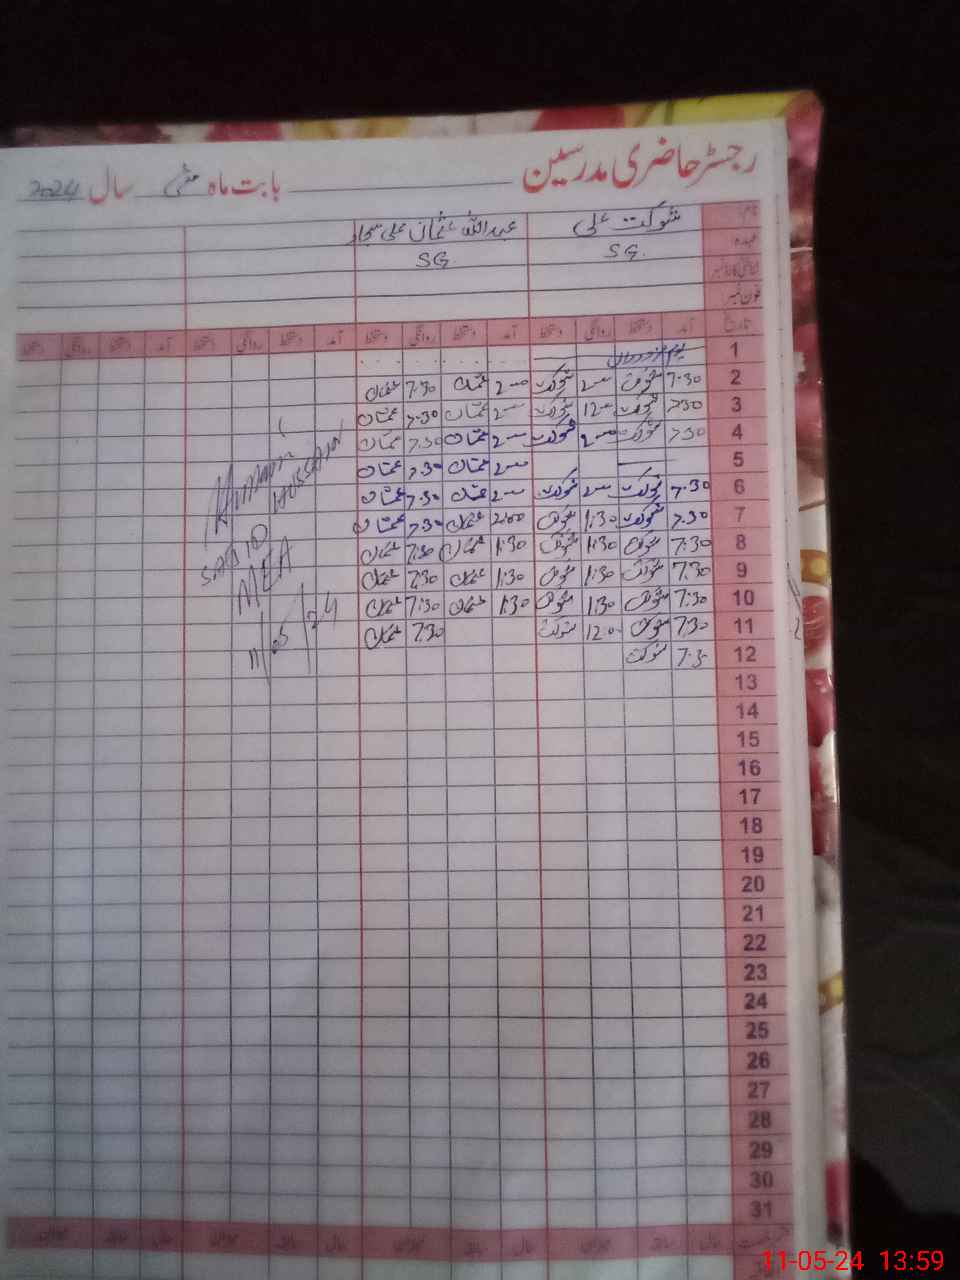 رجسٹر حاضری مدرسین بابت ماہ مئی سال 2024
نام شوکت علی عبداللہ عثمان علی سجاد
عہدہ SG. SG.
شناختی کارڈ نمبر
فون نمبر
تاریخ آمد دستخط روانگی دستخط آمد دستخط روانگی دستخط آمد دستخط روانگی دستخط آمد دستخط روانگی دستخط
1 یوم مزدوراں
2 7.30 شوکت شوکت عثمان 7.30 عثمان
3 7.30 شوکت 12 شوکت عثمان 7.30 عثمان
4 7.30 شوکت شوکت عثمان 7.30 عثمان
5 عثمان 7.30 عثمان
6 7.30 شوکت شوکت عثمان 7.30 عثمان
7 7.30 شوکت 1:30 شوکت 2:00 عثمان 7.30 عثمان
8 7:30 شوکت 1:30 شوکت 1:30 عثمان 7:30 عثمان
9 7:30 شوکت 1:30 شوکت 1:30 عثمان 7:30 عثمان
10 7:30 شوکت 1:30 شوکت 1:30 عثمان 7:30 عثمان
11 7:30 شوکت 12:0 شوکت 7:30 عثمان
12 7:3 شوکت
13
14
15
16
17
18
19
20
21
22
23
24
25
26
27
28
29
30
31
HUSSAIN
SAJID
MEA
11/05/24
11-05-24 13:59